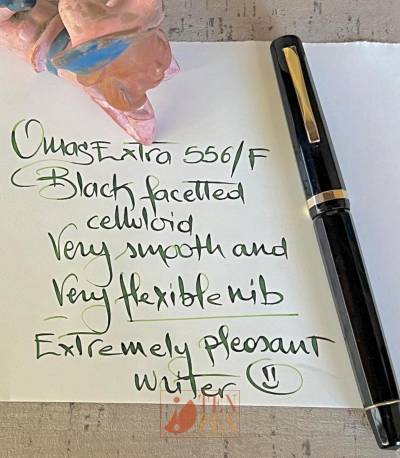 Omas Extra 556/F
Black facetted
celluloid
Very smooth and
Very flexible nib
Extremely pleasant
writer